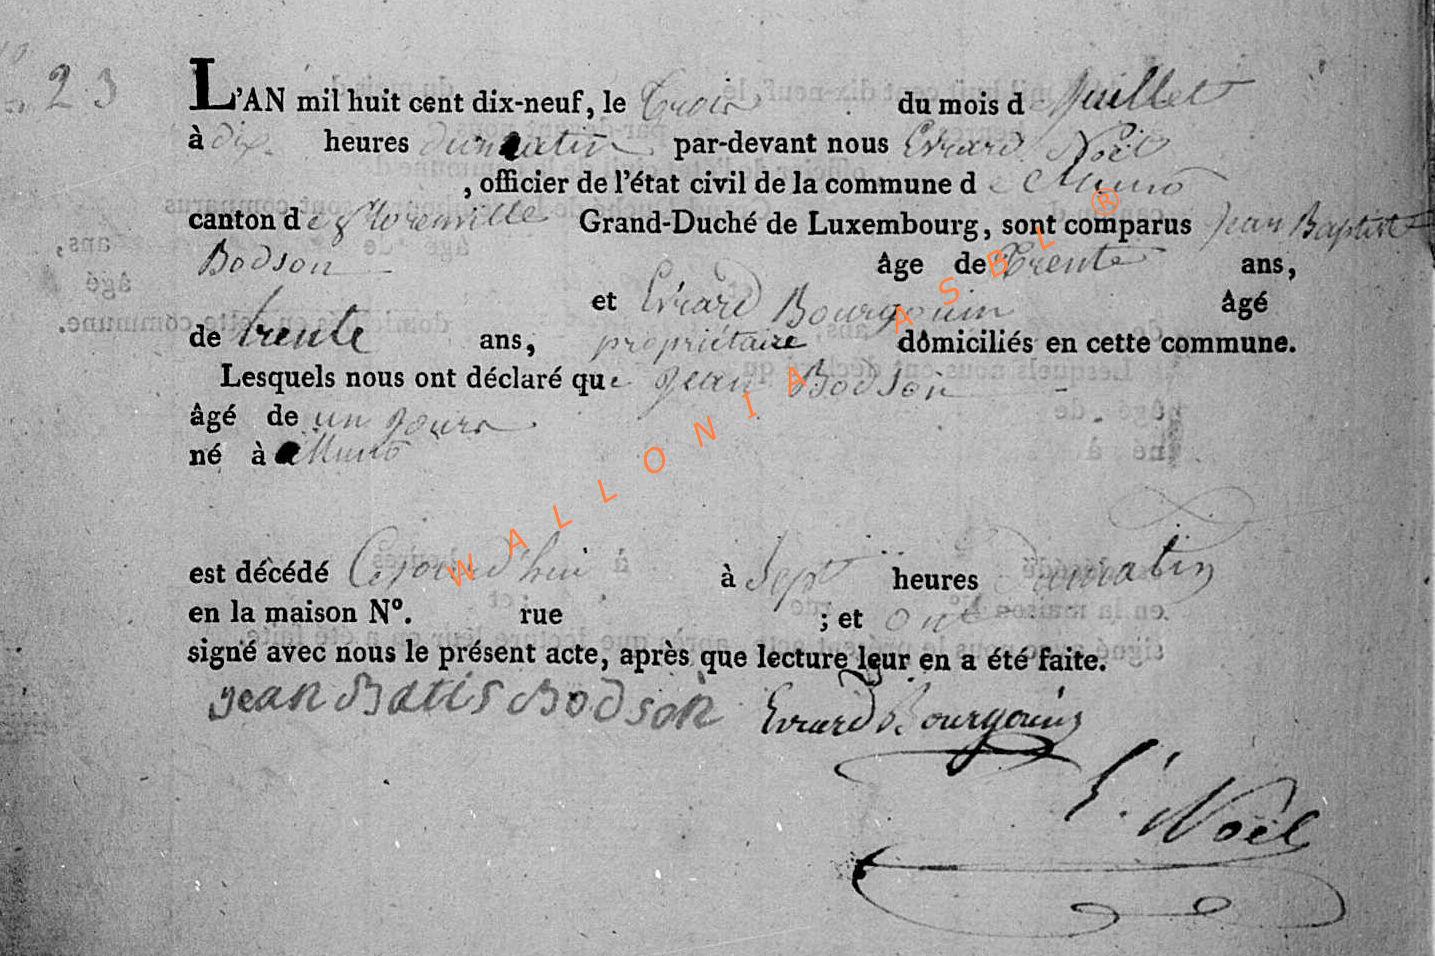 23
L'AN mil huit cent dix-neuf, le trois du mois d Juillet
à dix heures du matin par-devant nous Evrard Noël
, officier de l'état civil de la commune de Muno
canton de Florenville Grand-Duché de Luxembourg, sont comparus Jean Baptiste
Bodson âge de trente ans,
et Evrard Bourgouin âgé
de trente ans, propriétaire domiciliés en cette commune.
Lesquels nous ont déclaré que Jean Bodson
âgé de un jours
né à Muno
est décédé Cejourd'hui à Sept heures du matin
en la maison N°. rue ; et ont
signé avec nous le présent acte, après que lecture leur en a été faite.
jean Batis Bodson Evrard Bourgouin
E. Noël
WALLONIA ASBL ®